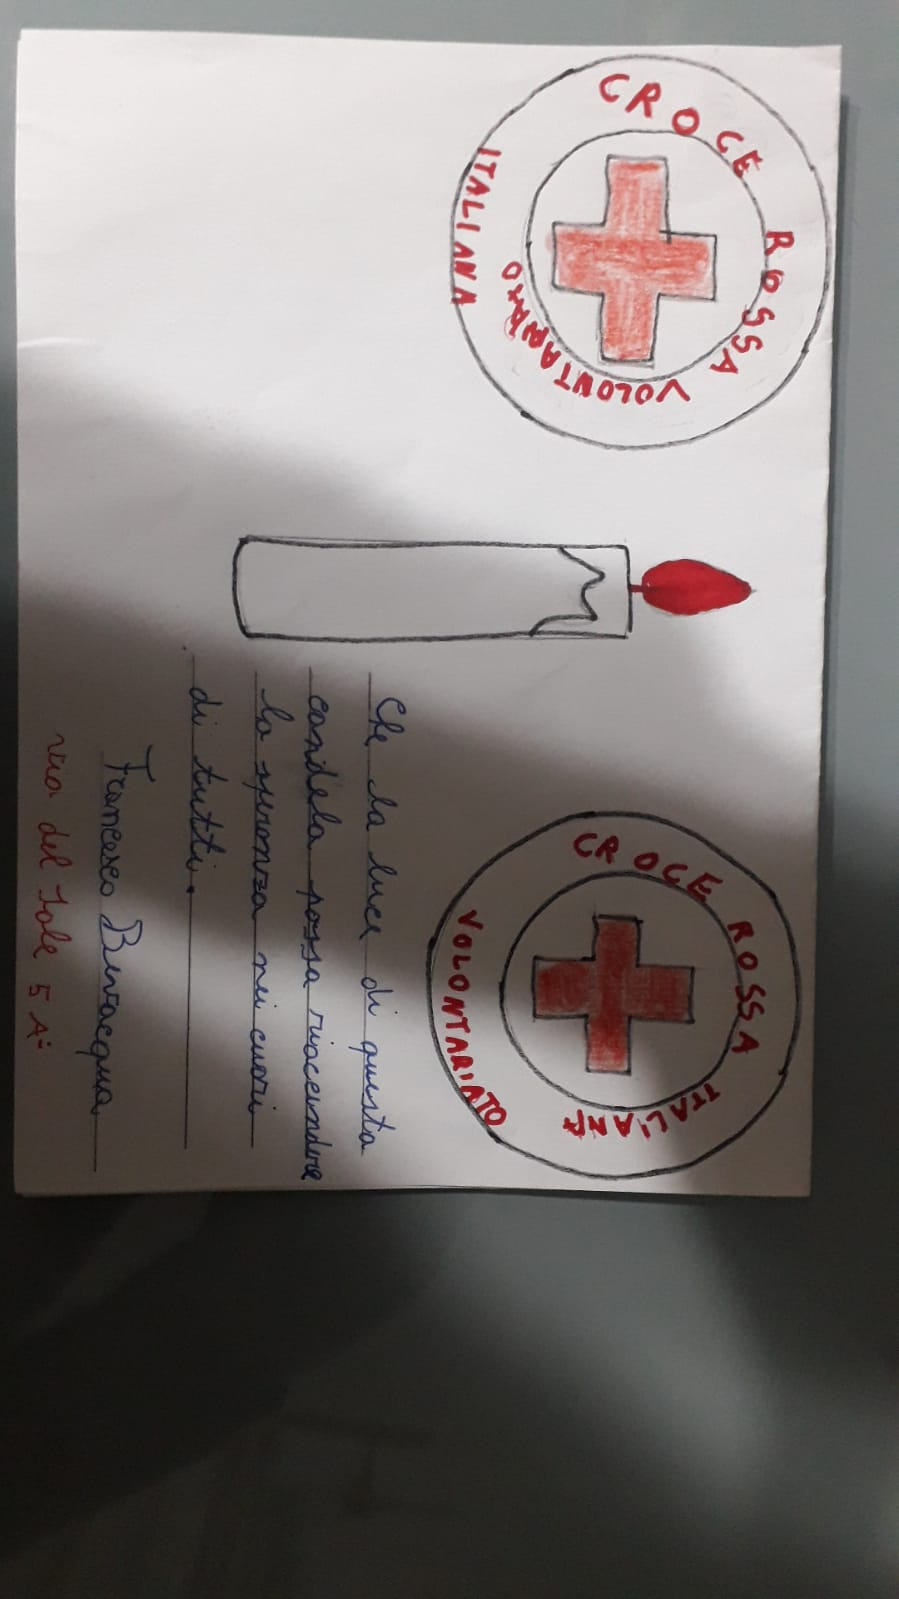 CROCE ROSSA
VOLONTARIATO
ITALIANA
CROCE ROSSA
ITALIANA
VOLONTARIATO
Che la luce di questa
candela possa riaccendere
la speranza nei cuori
di tutti.
Francesco Bevacqua
via del Sole 5 Aˆ